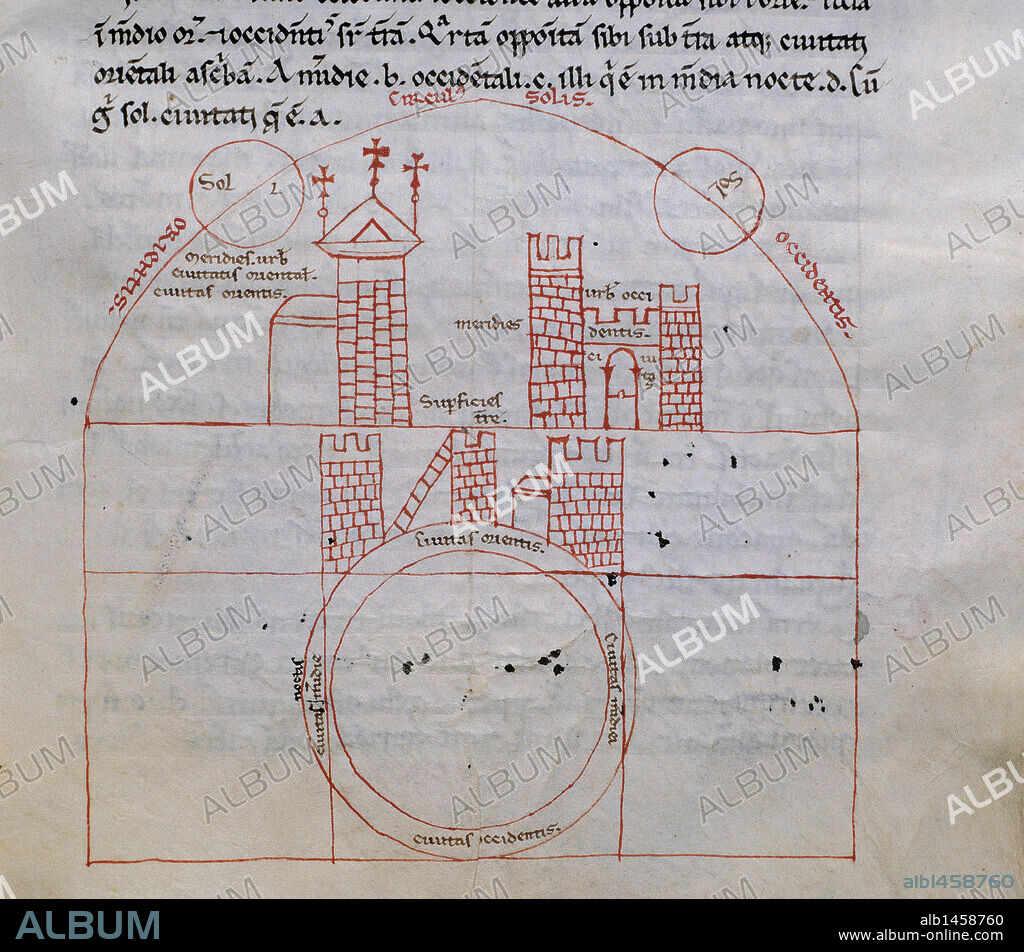 ī mdio or̄. ⁊ occidnti sr̄ tr̄a. Qrtā oppoitā sibi sub tr̄a atq; ciuitati
orientali ascbā. A mdie .b. occidētali .c. illi q̄ ē in mdia nocte .d. Cū
g sol. ciuitati q̄ ē .a.
Circulꝰ solis.
Sol
Sol
orientis.
occidentis.
Meridies. urb
ciuitatis oriental.
ciuitas orientis.
meridies
urb occi
dentis.
ci ui
tas
Supficies
tr̄e.
Ciuitas orientis.
noctis
ciuitas mdie
Ciuitas mdiei
ciuitas occidentis.
ALBUM
alb1458760
ALBUM
alb1458760
www.album-online.com